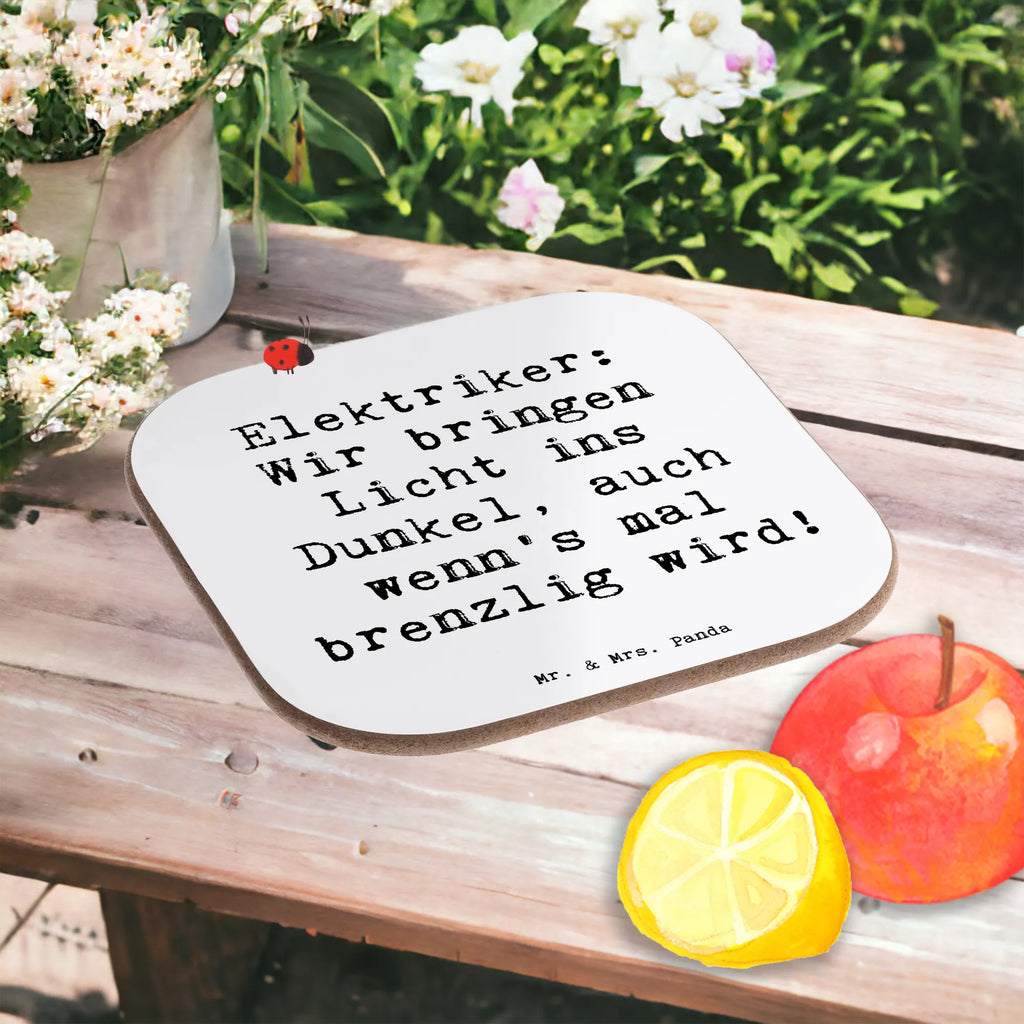 Elektriker:
Wir bringen
Licht ins
Dunkel, auch
wenn's mal
brenzlig wird!
Mr. & Mrs. Panda